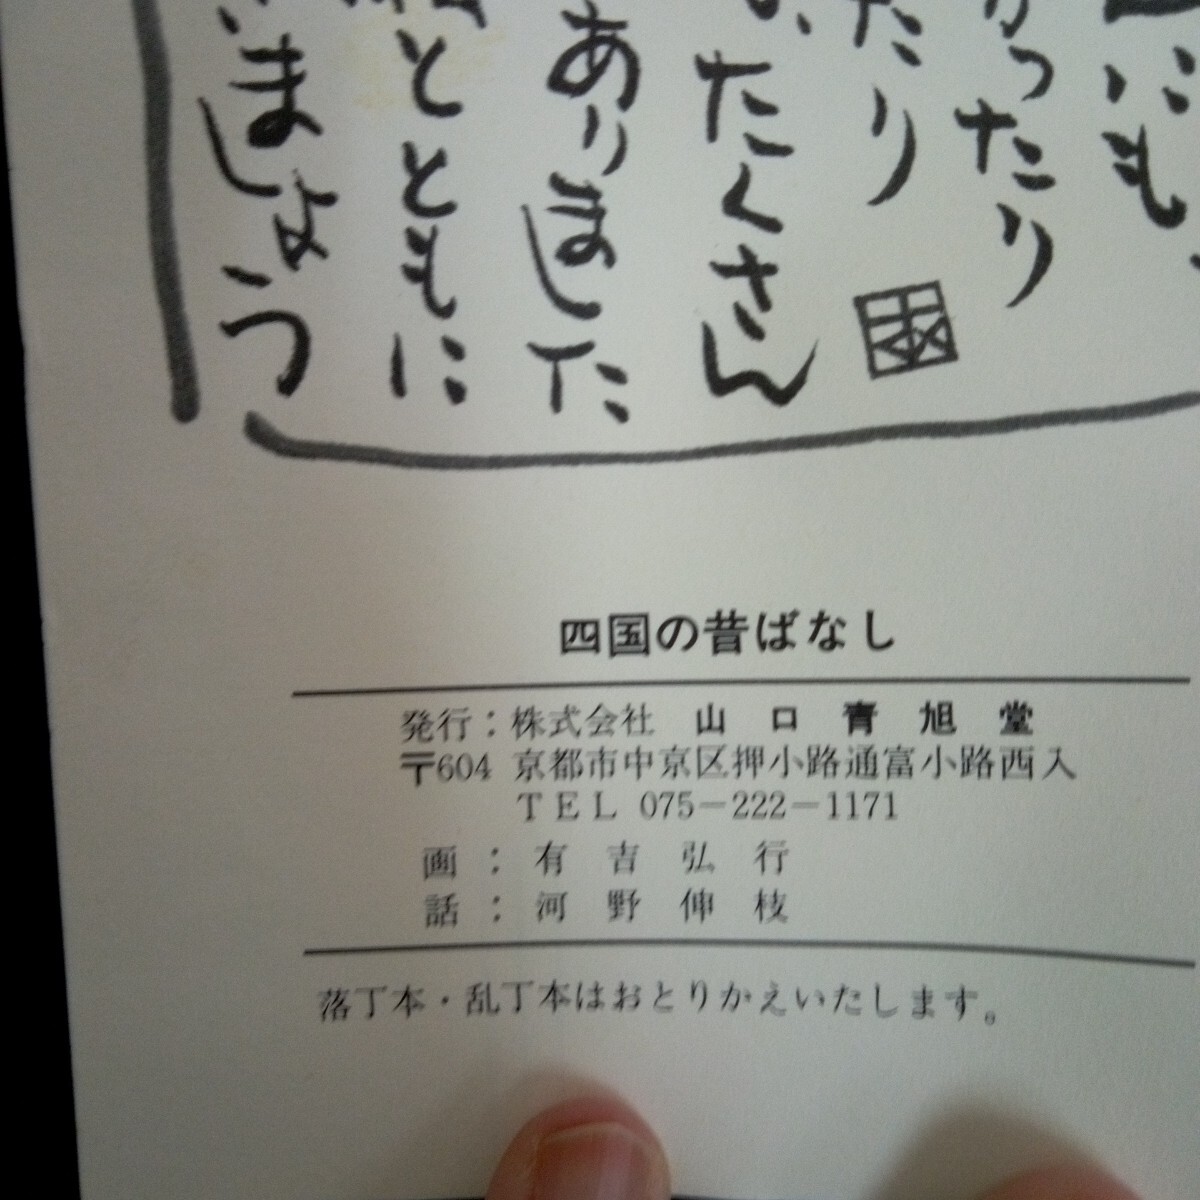 にも
かったり
たり
たくさん
ありました
とともに
いましょう
四国の昔ばなし
発行：株式会社 山口青旭堂
〒604 京都市中京区押小路通富小路西入
TEL 075－222－1171
画：有吉弘行
話：河野伸枝
落丁本・乱丁本はおとりかえいたします。